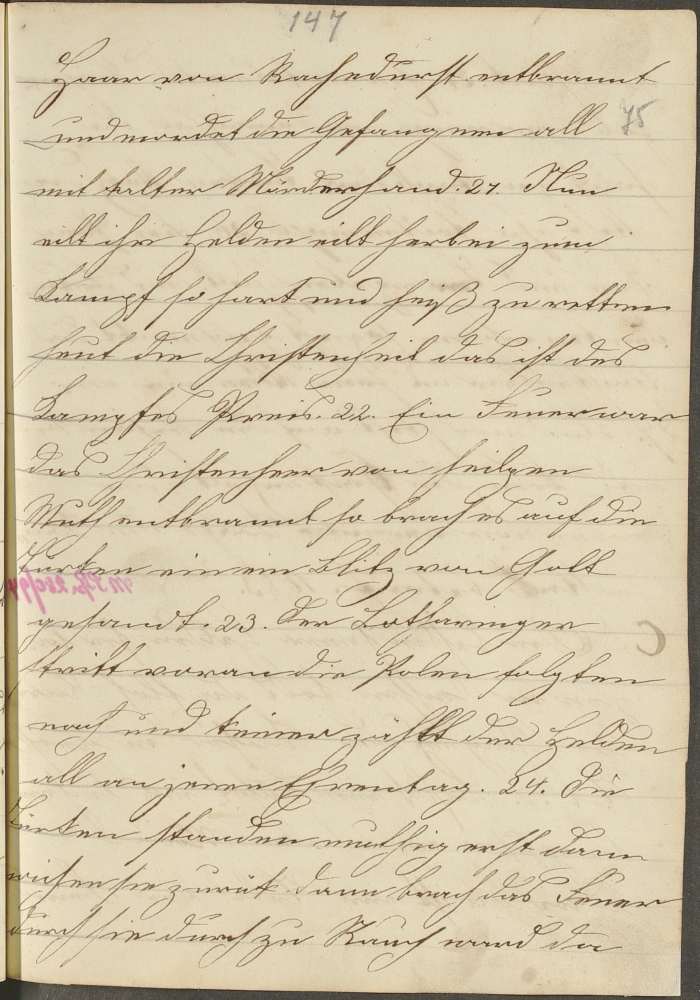 147
Haar von Rachedurst entbrannt
75
und mordet die Gefangnen all
mit kalter Mörderhand. 21. Nun
eilt ihr Helden eilt herbei zum
Kampf so hart und heiß zu retten
heut die Christenheit das ist des
Kampfes Preis. 22. Ein Feuer war
das Christenheer von heilgen
Muth entbrannt so brach es auf die
Türken ein ein Blitz von Gott
gesandt. 23. Der Lotharinger
stritt voran die Polen folgten
nach und keiner zählt der Helden
all an jenen Ehrentag. 24. Die
Türken standen muthig erst dann
wichen sie zurük dann brach das Feuer
durch sie durch zu Rauch ward da